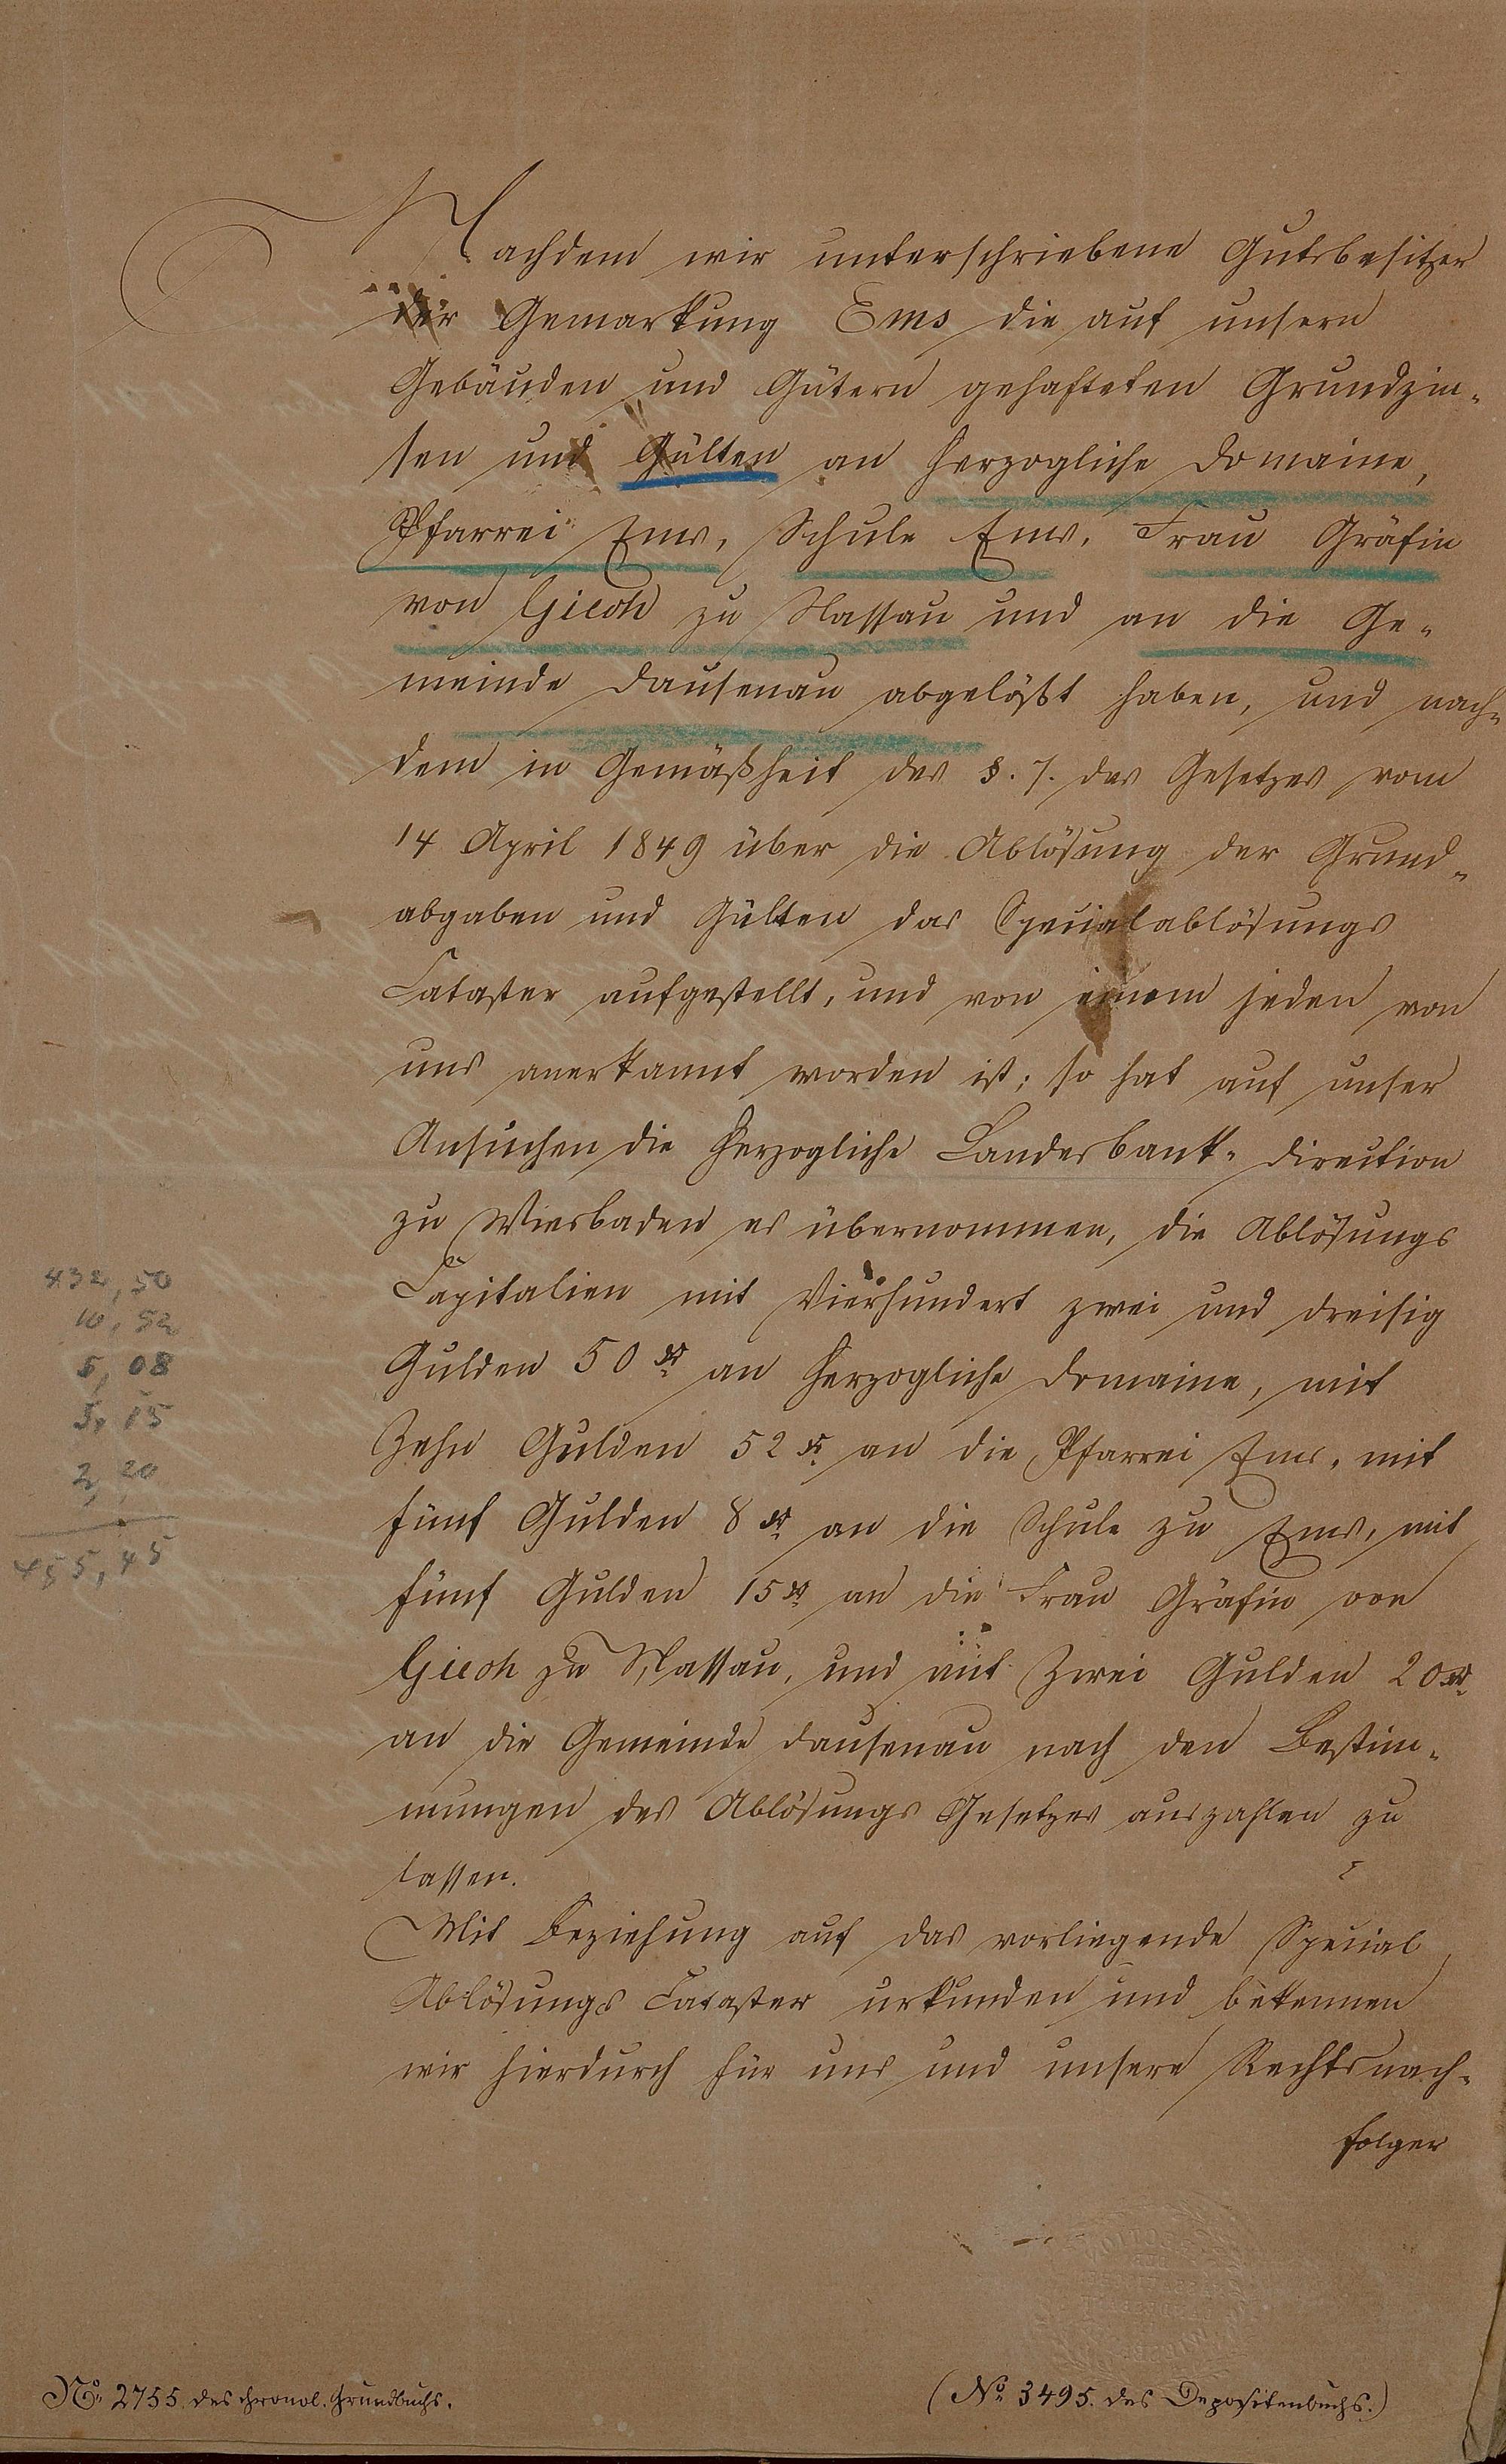 Nachdem wir unterschriebene Gutsbesitzer
der Gemarkung Ems die auf unsern
Gebäuden und Gütern gehafteten Grundzin-
sen und Gülten an Herzogliche Domaine,
Pfarrei Ems, Schule Ems, Frau Gräfin
von Giech zu Nassau und an die Ge-
meinde Dausenau abgelößt haben, und nach-
dem in Gemäßheit des §. 7. des Gesetzes vom
14 April 1849 über die Ablösung der Grund-
abgaben und Gülten das Specialablösungs
Cataster aufgestellt, und von einem jeden von
uns anerkannt worden ist; so hat auf unser
Ansuchen die Herzogliche Landesbank-Direction
zu Wiesbaden es übernommen, die Ablösungs
Capitalien mit Vierhundert zwei und dreisig
Gulden 50 xr an Herzogliche Domaine, mit
Zehn Gulden 52 xr an die Pfarrei Ems, mit
fünf Gulden 8 xr an die Schule zu Ems, mit
fünf Gulden 15 xr an die Frau Gräfin von
Giech zu Nassau, und mit Zwei Gulden 20 xr
an die Gemeinde Dausenau nach den Bestim-
mungen des Ablösungs Gesetzes auszahlen zu
lassen.
Mit Beziehung auf das vorliegende Special
Ablösungs Cataster urkunden und bekennen
wir hierdurch für uns und unsere Rechtsnach-
folger
432,50
10,52
5,08
5,15
2,20
455,45
No. 2755. des chronol. Grundbuchs.
(No. 3495. des Depositenbuchs.)